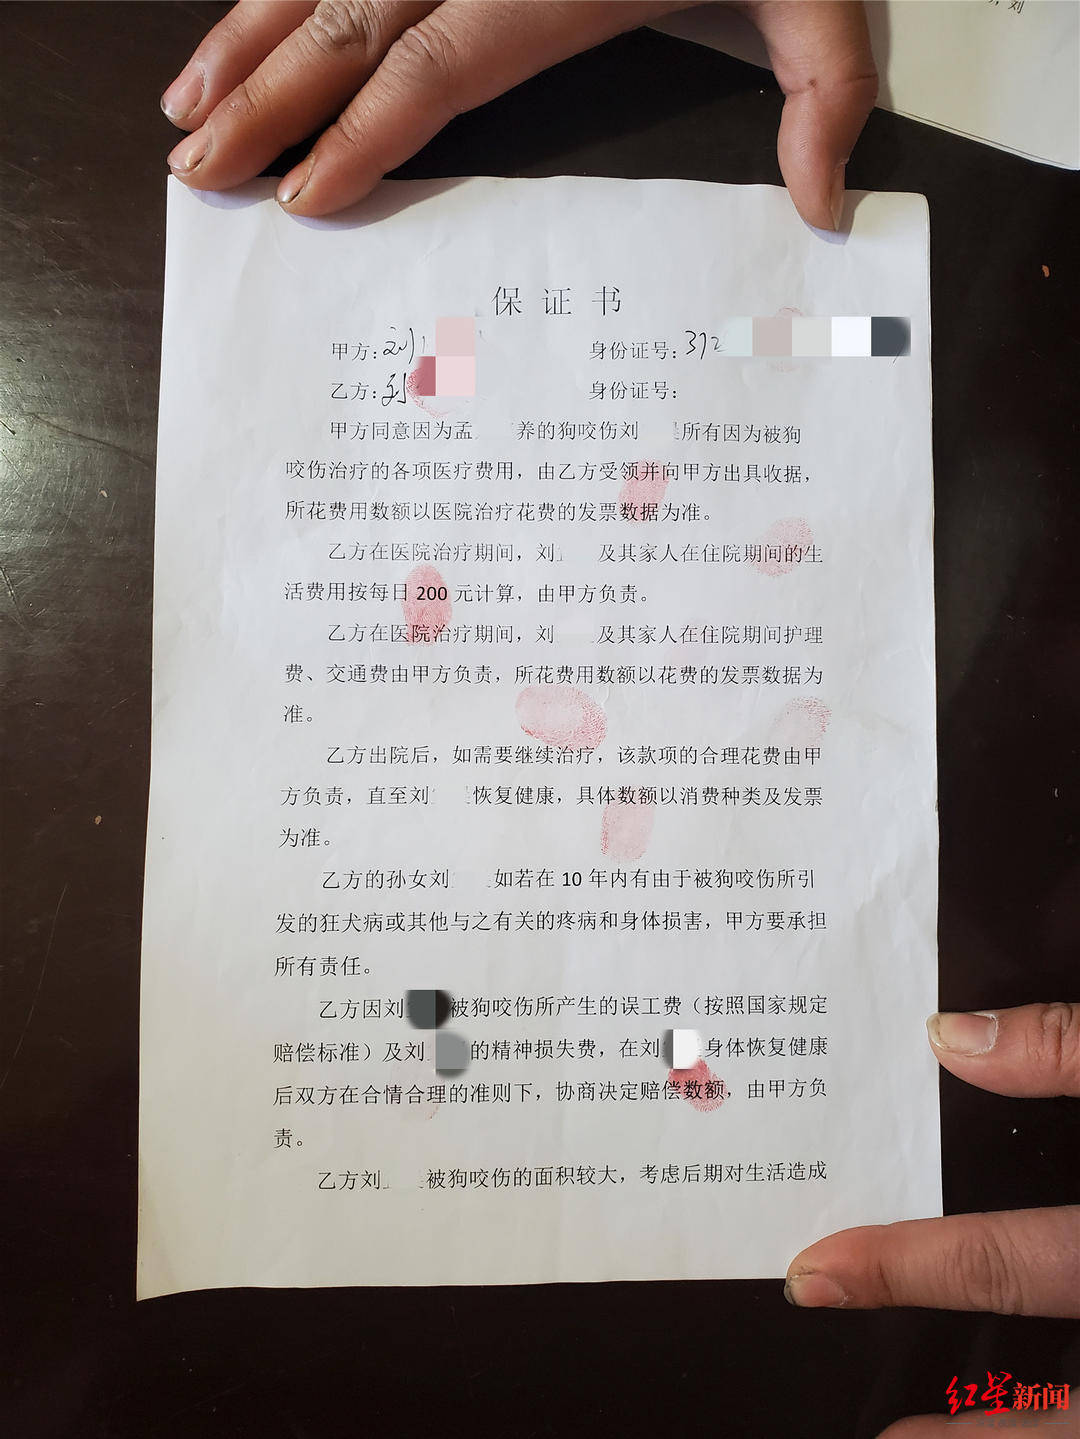 刘
保证书
甲方：刘 身份证号：372
乙方：刘 身份证号：
甲方同意因为孟 养的狗咬伤刘 是所有因为被狗
咬伤治疗的各项医疗费用，由乙方受领并向甲方出具收据，
所花费用数额以医院治疗花费的发票数据为准。
乙方在医院治疗期间，刘 及其家人在住院期间的生
活费用按每日 200 元计算，由甲方负责。
乙方在医院治疗期间，刘 及其家人在住院期间护理
费、交通费由甲方负责，所花费用数额以花费的发票数据为
准。
乙方出院后，如需要继续治疗，该款项的合理花费由甲
方负责，直至刘 恢复健康，具体数额以消费种类及发票
为准。
乙方的孙女刘 如若在 10 年内有由于被狗咬伤所引
发的狂犬病或其他与之有关的疼病和身体损害，甲方要承担
所有责任。
乙方因刘 被狗咬伤所产生的误工费（按照国家规定
赔偿标准）及刘 的精神损失费，在刘 身体恢复健康
后双方在合情合理的准则下，协商决定赔偿数额，由甲方负
责。
乙方刘 被狗咬伤的面积较大，考虑后期对生活造成
红星新闻